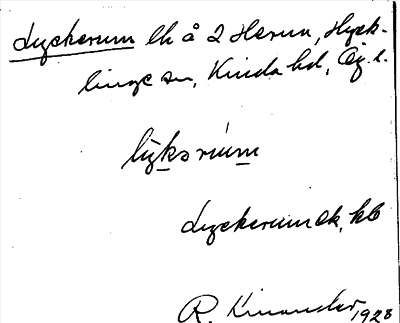 Lyckerum lh å 2 Herrn, Hyck-
linge sn, Kinda hd, Ög. l.
lỳksrúm
Lyckerum ek, kb
R. Kinander 1928